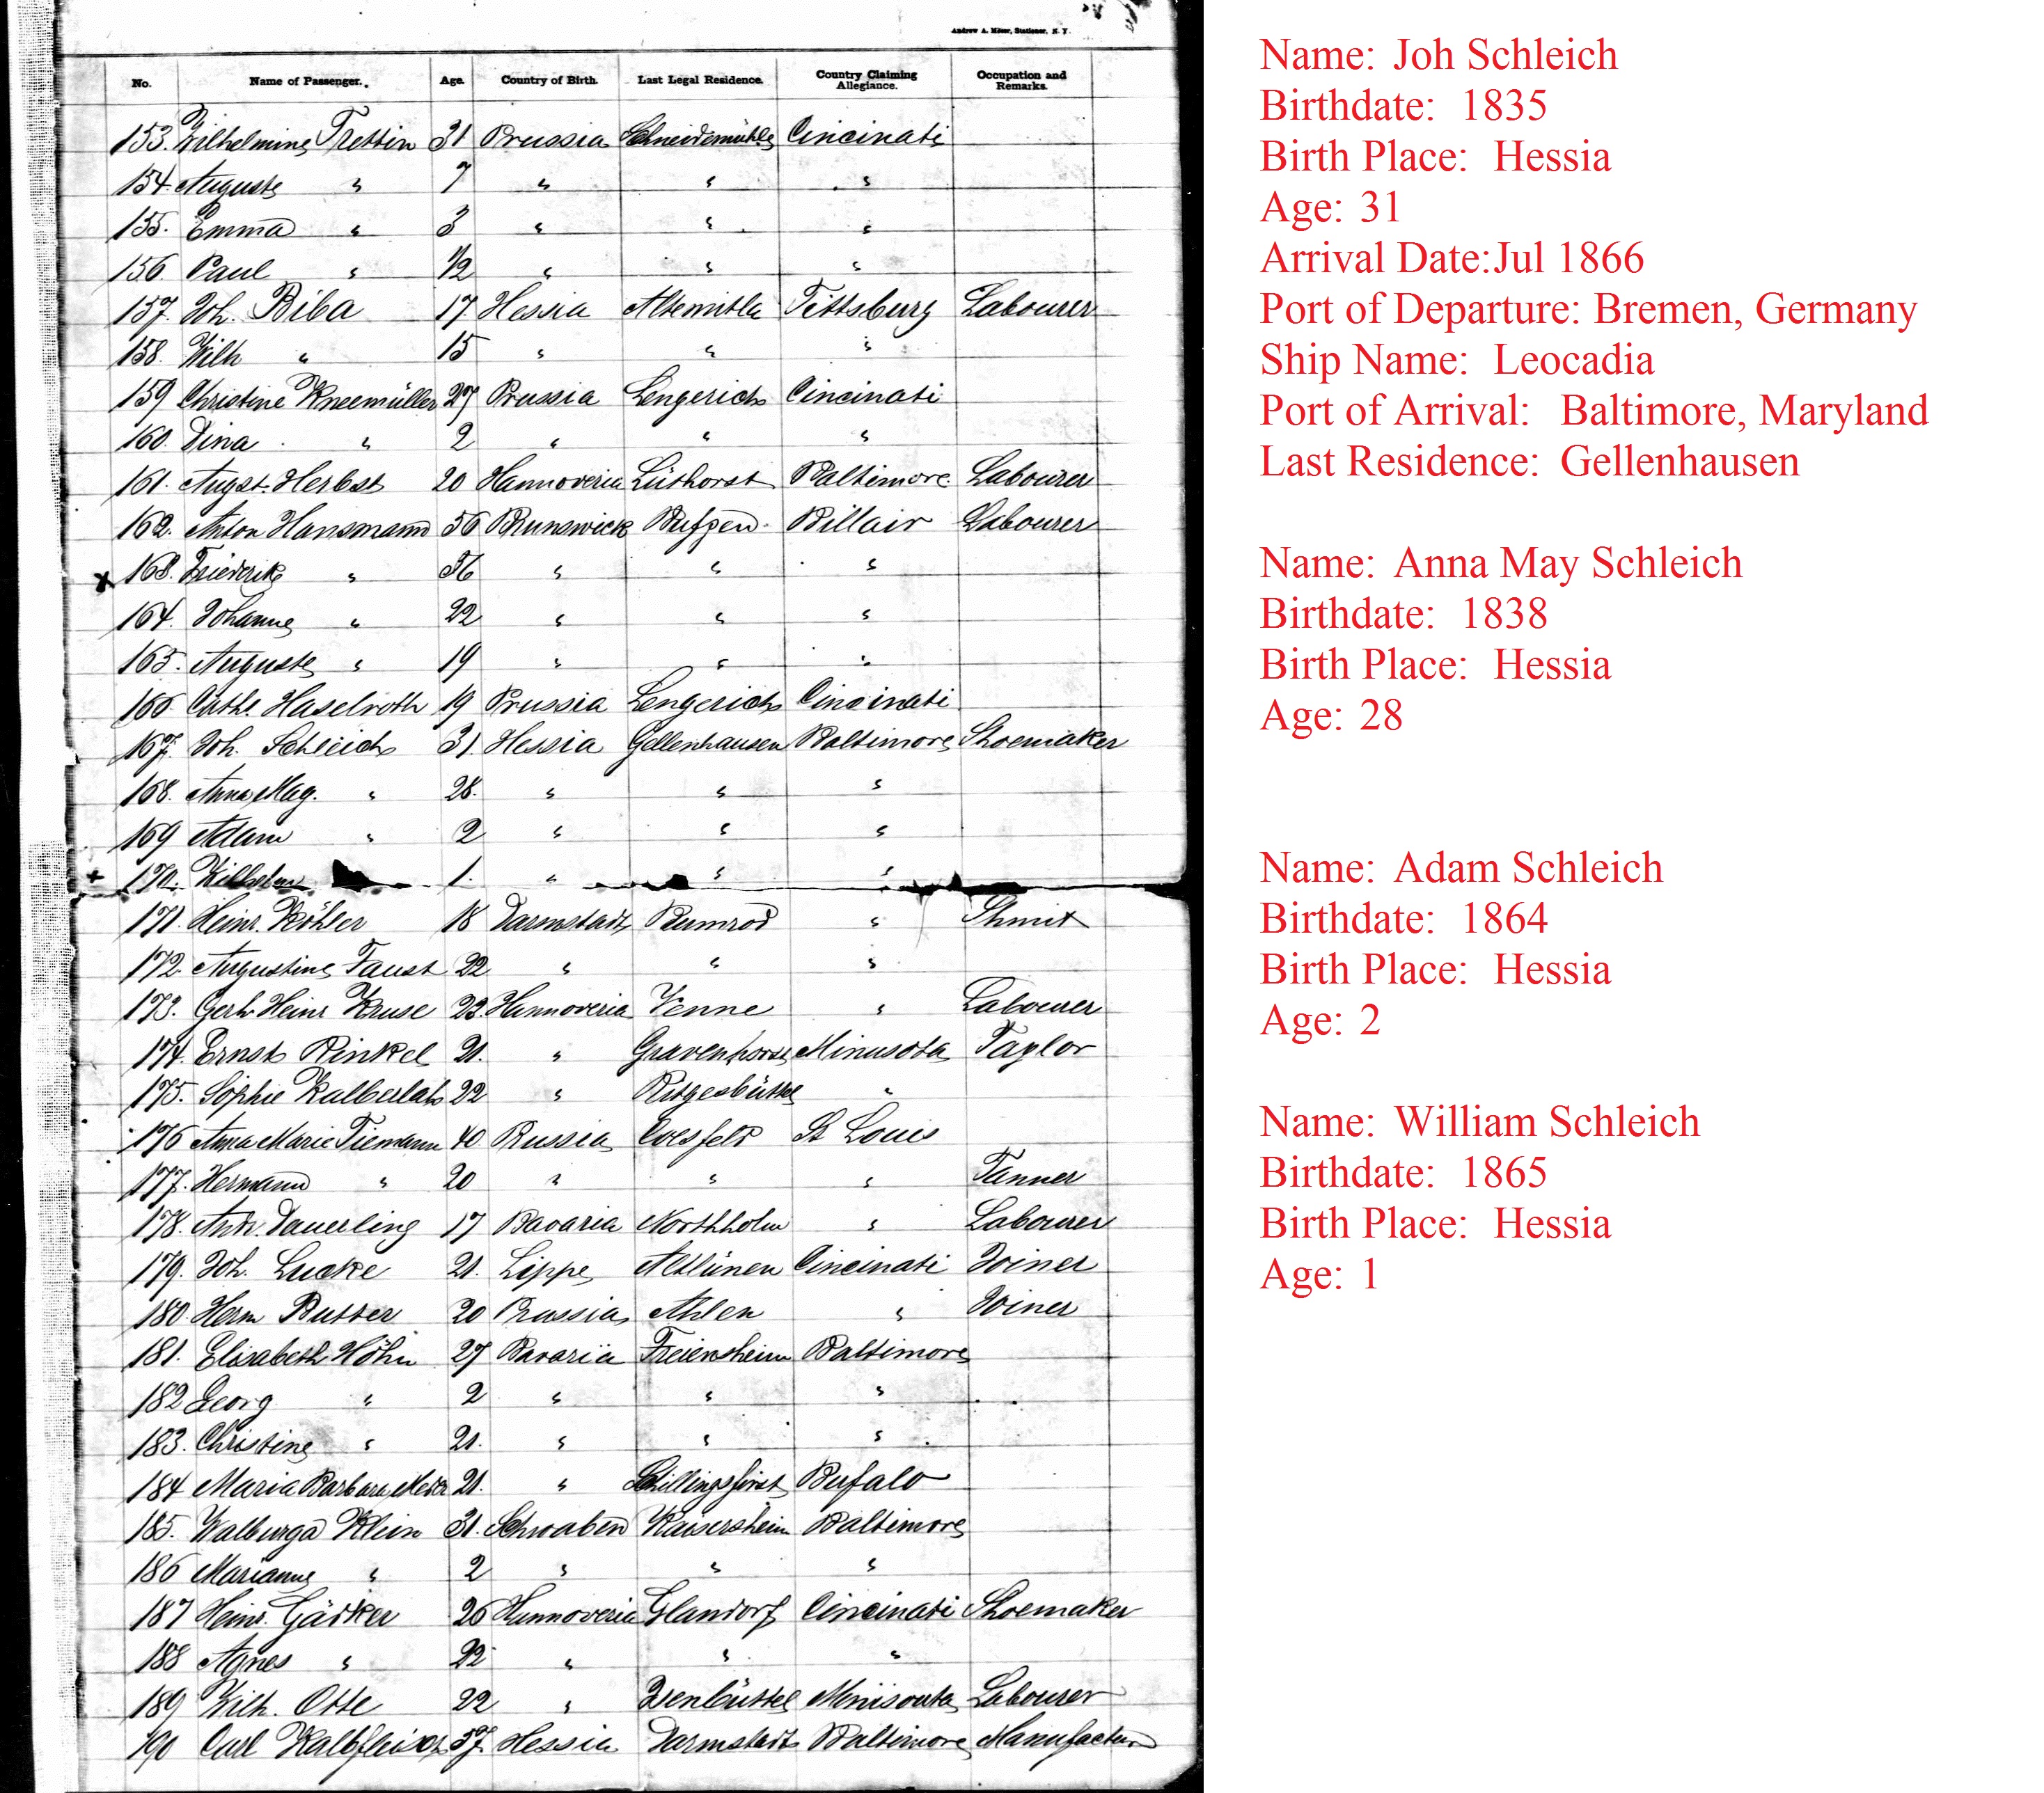 Andrew A. Miner, Stationer, N. Y.
No. Name of Passenger. Age. Country of Birth. Last Legal Residence. Country Claiming Allegiance. Occupation and Remarks.
153. Wilhelmine Trettin 31 Prussia Schneidemühle Cincinati
154. Auguste " 7 " " "
155. Emma " 3 " " "
156. Paul " 1/2 " " "
157. Joh. Biba 17 Hessia Altemitla Pittsburg Labourer
158. Wilh " 15 " " "
159 Christine Kneemüller 27 Prussia Lengerich Cincinati
160. Dina " 2 " " "
161. Augst. Herbst 20 Hannoveria Lüthorst Baltimore Labourer
162. Anton Hansmann 56 Brunswick Billair Labourer
x 163. Friederike " 56 " " "
164. Johanne " 22 " " "
165. Auguste " 19 " " "
166 Cathe. Haselroth 19 Prussia Lengerich Cincinati
167. Joh. Schleich 31. Hessia Gellenhausen Baltimore Shoemaker
168. Anna Mag. " 28. " " "
169 Adam " 2 " " "
+ 170. Wilhelm 1. " " "
171. Heinr. Köhler 18 Darmstadt Rumrod " Shmit
172. Augustine Faust 22 " " "
173. Gerh Heinr Kruse 23. Hannoveria Venne " Labourer
174. Ernst Rinkel 21. " Gravenhorst Minusota Taylor
175. Sophie Kalberlah 22 " Ritgesbüttel "
176 Anna Marie Tiemann 40 Russia Coesfeld St Louis
177. Hermann " 20 " " " Tanner
178. Anh. Dauerling 17 Bavaria Northholm " Labourer
179. Joh. Lucke 21. Lippe Altlünen Cincinati Joiner
180. Herm Butter 20 Prussia Ahlen " Joiner
181. Elisabeth Höhn 27 Bavaria Freiensheim Baltimore
182 Georg " 2 " " "
183. Christine " 21. " " "
184 Maria Barbara 21. " Schillingsfirst Bufalo
185. Walburga Klein 31. Schwaben Kaisersheim Baltimore
186 Marianne " 2 " " "
187 Heinr. Gädker 26 Hannoveria Glandorf Cincinati Shoemaker
188 Agnes " 22 " " "
189 Wilh. Otte 22 " Isenbüttel Minisouta Labourer
190 Carl Kalbfleisch 57. Hessia Darmstadt Baltimore Manufactur
Name: Joh Schleich
Birthdate: 1835
Birth Place: Hessia
Age: 31
Arrival Date:Jul 1866
Port of Departure: Bremen, Germany
Ship Name: Leocadia
Port of Arrival: Baltimore, Maryland
Last Residence: Gellenhausen
Name: Anna May Schleich
Birthdate: 1838
Birth Place: Hessia
Age: 28
Name: Adam Schleich
Birthdate: 1864
Birth Place: Hessia
Age: 2
Name: William Schleich
Birthdate: 1865
Birth Place: Hessia
Age: 1